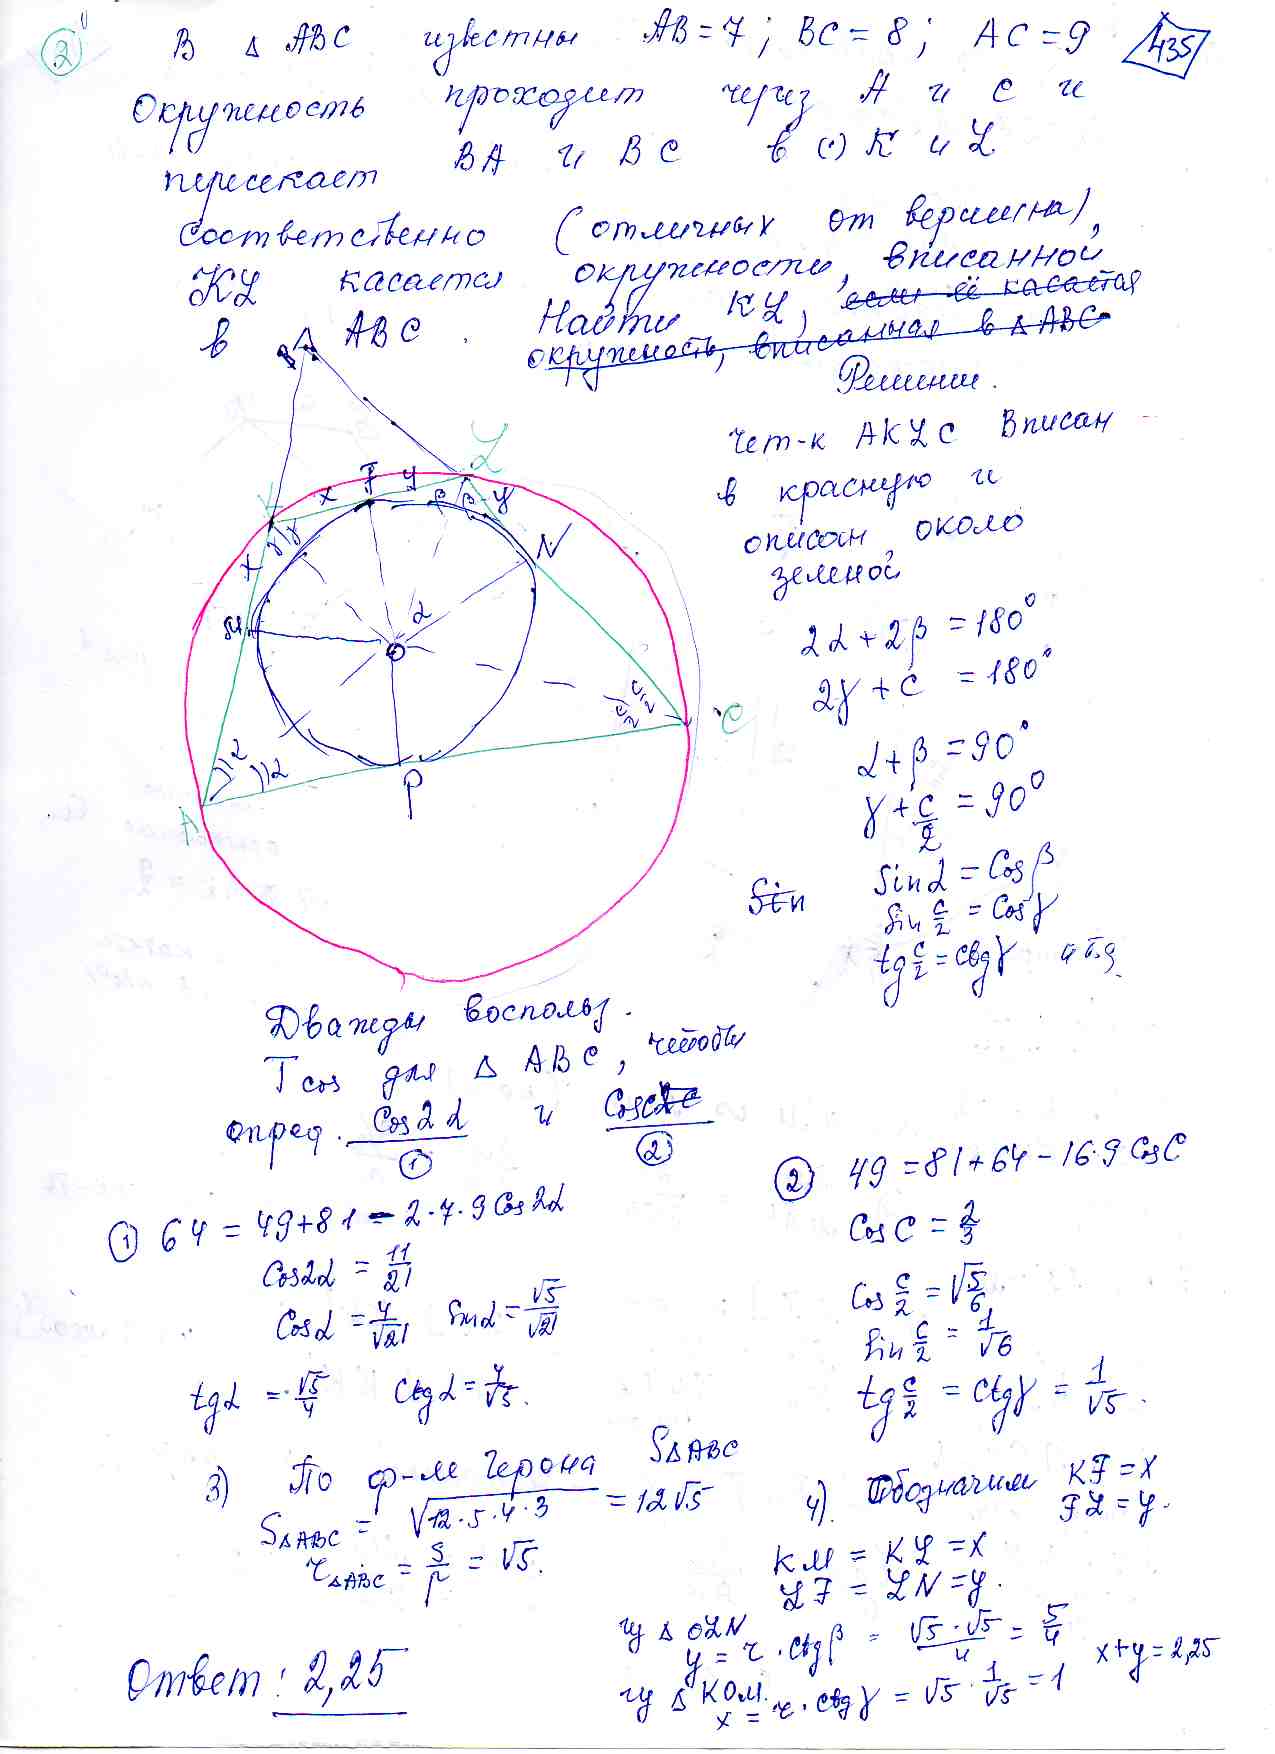 2
В Δ ABC известны AB = 7 ; BC = 8 ; AC = 9
435
Окружность проходит через A и C и
пересекает BA и BC в (·) K и L
соответственно (отличных от вершина),
KL касается окружности, вписанной
в Δ ABC . Найти KL, если её касается
окружность, вписанная в Δ ABC
Решение.
B
K
x
F
y
L
β
β
y
γ
γ
x
N
M
α
O
c/2
c/2
C
α
α
P
A
Чет-к AKLC Вписан
в красную и
описан около
зеленой
2α + 2β = 180°
2γ + C = 180°
α + β = 90°
γ + C/2 = 90°
Sin
Sin α = Cos β
Sin C/2 = Cos γ
tg C/2 = ctg γ и т.д.
Дважды воспольз.
T cos для Δ ABC, чтобы
опред. Cos 2α и Cos C
① ②
① 64 = 49 + 81 - 2·7·9 Cos 2α
Cos 2α = 11/21
Cos α = 4/√21 Sin α = √5/√21
tg α = √5/4 Ctg α = 4/√5.
② 49 = 81 + 64 - 16·9 Cos C
Cos C = 2/3
Cos C/2 = √5/6
Sin C/2 = 1/√6
tg C/2 = Ctg γ = 1/√5.
3) По ф-ле Герона SΔABC
SΔABC = √12·5·4·3 = 12√5
rΔABC = S/p = √5.
4). Обозначим KF = x
FL = y.
KM = KL = x
LF = LN = y.
из Δ OLN
y = r · Ctg β = √5·√5/4 = 5/4
x + y = 2,25
из Δ KOM.
x = r · Ctg γ = √5 · 1/√5 = 1
Ответ: 2,25